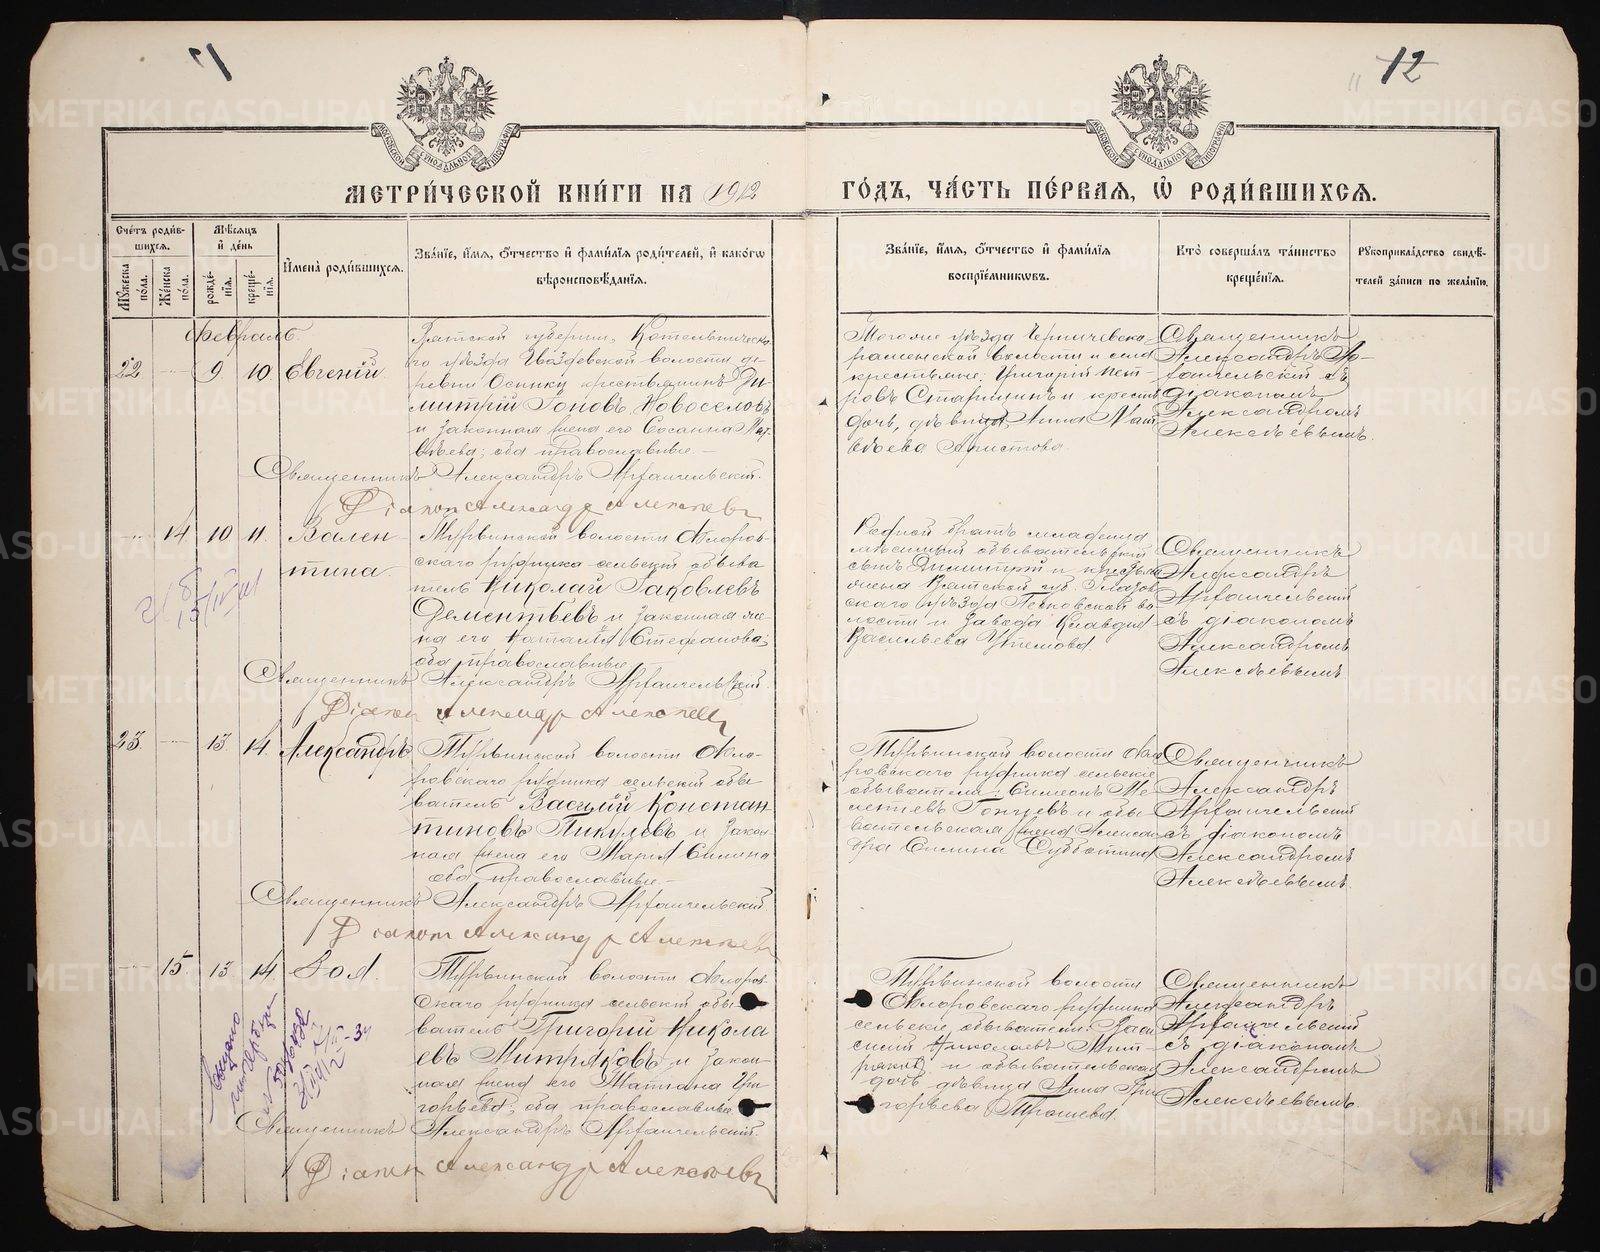 12
МЕТРИ́ЧЕСКОЙ КНИ́ГИ НА 1912 ГО́ДЪ, ЧА́СТЬ ПЕ́РВАЯ, Ѡ҆ РОДИ́ВШИХСЯ.
Сче́тъ роди́вшихся.
Му́жеска по́ла.
Же́нска по́ла.
Мѣ́сяцъ и҆ де́нь
рожде́нїя.
креще́нїя.
И҆мена̀ роди́вшихся.
Зва́нїе, и҆́мя, ѻ҆́тчество и҆ фами́лїя роди́телей, и҆ како́гѡ
вѣроисповѣ́данїя.
Зва́нїе, и҆́мя, ѻ҆́тчество и҆ фами́лїя
воспрїе́мникѡвъ.
Кто̀ соверша́лъ та́инство
креще́нїя.
Рꙋкоприкла́дство свидѣ́-
телей за́писи по жела́нїю.
Февраль.
22 9 10 Евгеній
Вятской губерніи, Котельническа-
го уѣзда Гвоздевской волости де-
ревни Осинки крестьянинъ Ди-
митрій Іоновъ Новоселовъ
и законная жена его Сосанна Мат-
вѣева; оба православные
Священникъ Александръ Архангельскій.
Діаконъ Александръ Алексѣевъ
Того же уѣзда
волости и села
крестьяне: Григорій Пет-
ровъ Старицинъ и крест.
дочь, дѣвица Анна Мат-
вѣева Аристова.
Священникъ
Александръ Ар-
хангельскій съ
діакономъ
Александромъ
Алексѣевымъ.
14 10 11 Вален-
тина
Турьинской волости Фролов-
скаго рудника сельскій обыва-
тель Николай Іаковлевъ
Дементьевъ и законная же-
на его Наталія Стефанова;
оба православные
Священникъ Александръ Архангельскій.
Діаконъ Александръ Алексѣевъ
Родной братъ младенца
обыватель
Димитрій и
жена Вятской губ. Глазов-
скаго уѣзда во-
лости и завода Клавдія
Васильева
Священникъ
Александръ
Архангельскій
съ діакономъ
Александромъ
Алексѣевымъ.
23. 13 14 Александръ
Турьинской волости Фро-
ловскаго рудника сельскій обы-
ватель Василій Констан-
тиновъ Пикулевъ и закон-
ная жена его Марія Силина
оба православные
Священникъ Александръ Архангельскій
Діаконъ Александръ Алексѣевъ
Турьинской волости Фло-
ровскаго рудника сельскіе
обыватели: Симеонъ Ме-
летіевъ и обы-
вательская жена Алексан-
дра Силина Субботина
Священникъ
Александръ
Архангельскій
съ діакономъ
Александромъ
Алексѣевымъ.
15. 13 14 Зоя.
Турьинской волости Флоров-
скаго рудника сельскій обы-
ватель Григорій Никола-
евъ Митряковъ и закон-
ная жена его Татіана Гри-
горьева; оба православные
Священникъ Александръ Архангельскій.
Діаконъ Александръ Алексѣевъ
Турьинской волости
Флоровскаго рудника
сельскіе обыватели: Васи-
Николаевъ Мит-
ряковъ и обывательская
дочь дѣвица Анна Гри-
горьева Трошева.
Священникъ
Александръ
Архангельскій
съ діакономъ
Александромъ
Алексѣевымъ.
METRIKI.GASO-URAL.RU